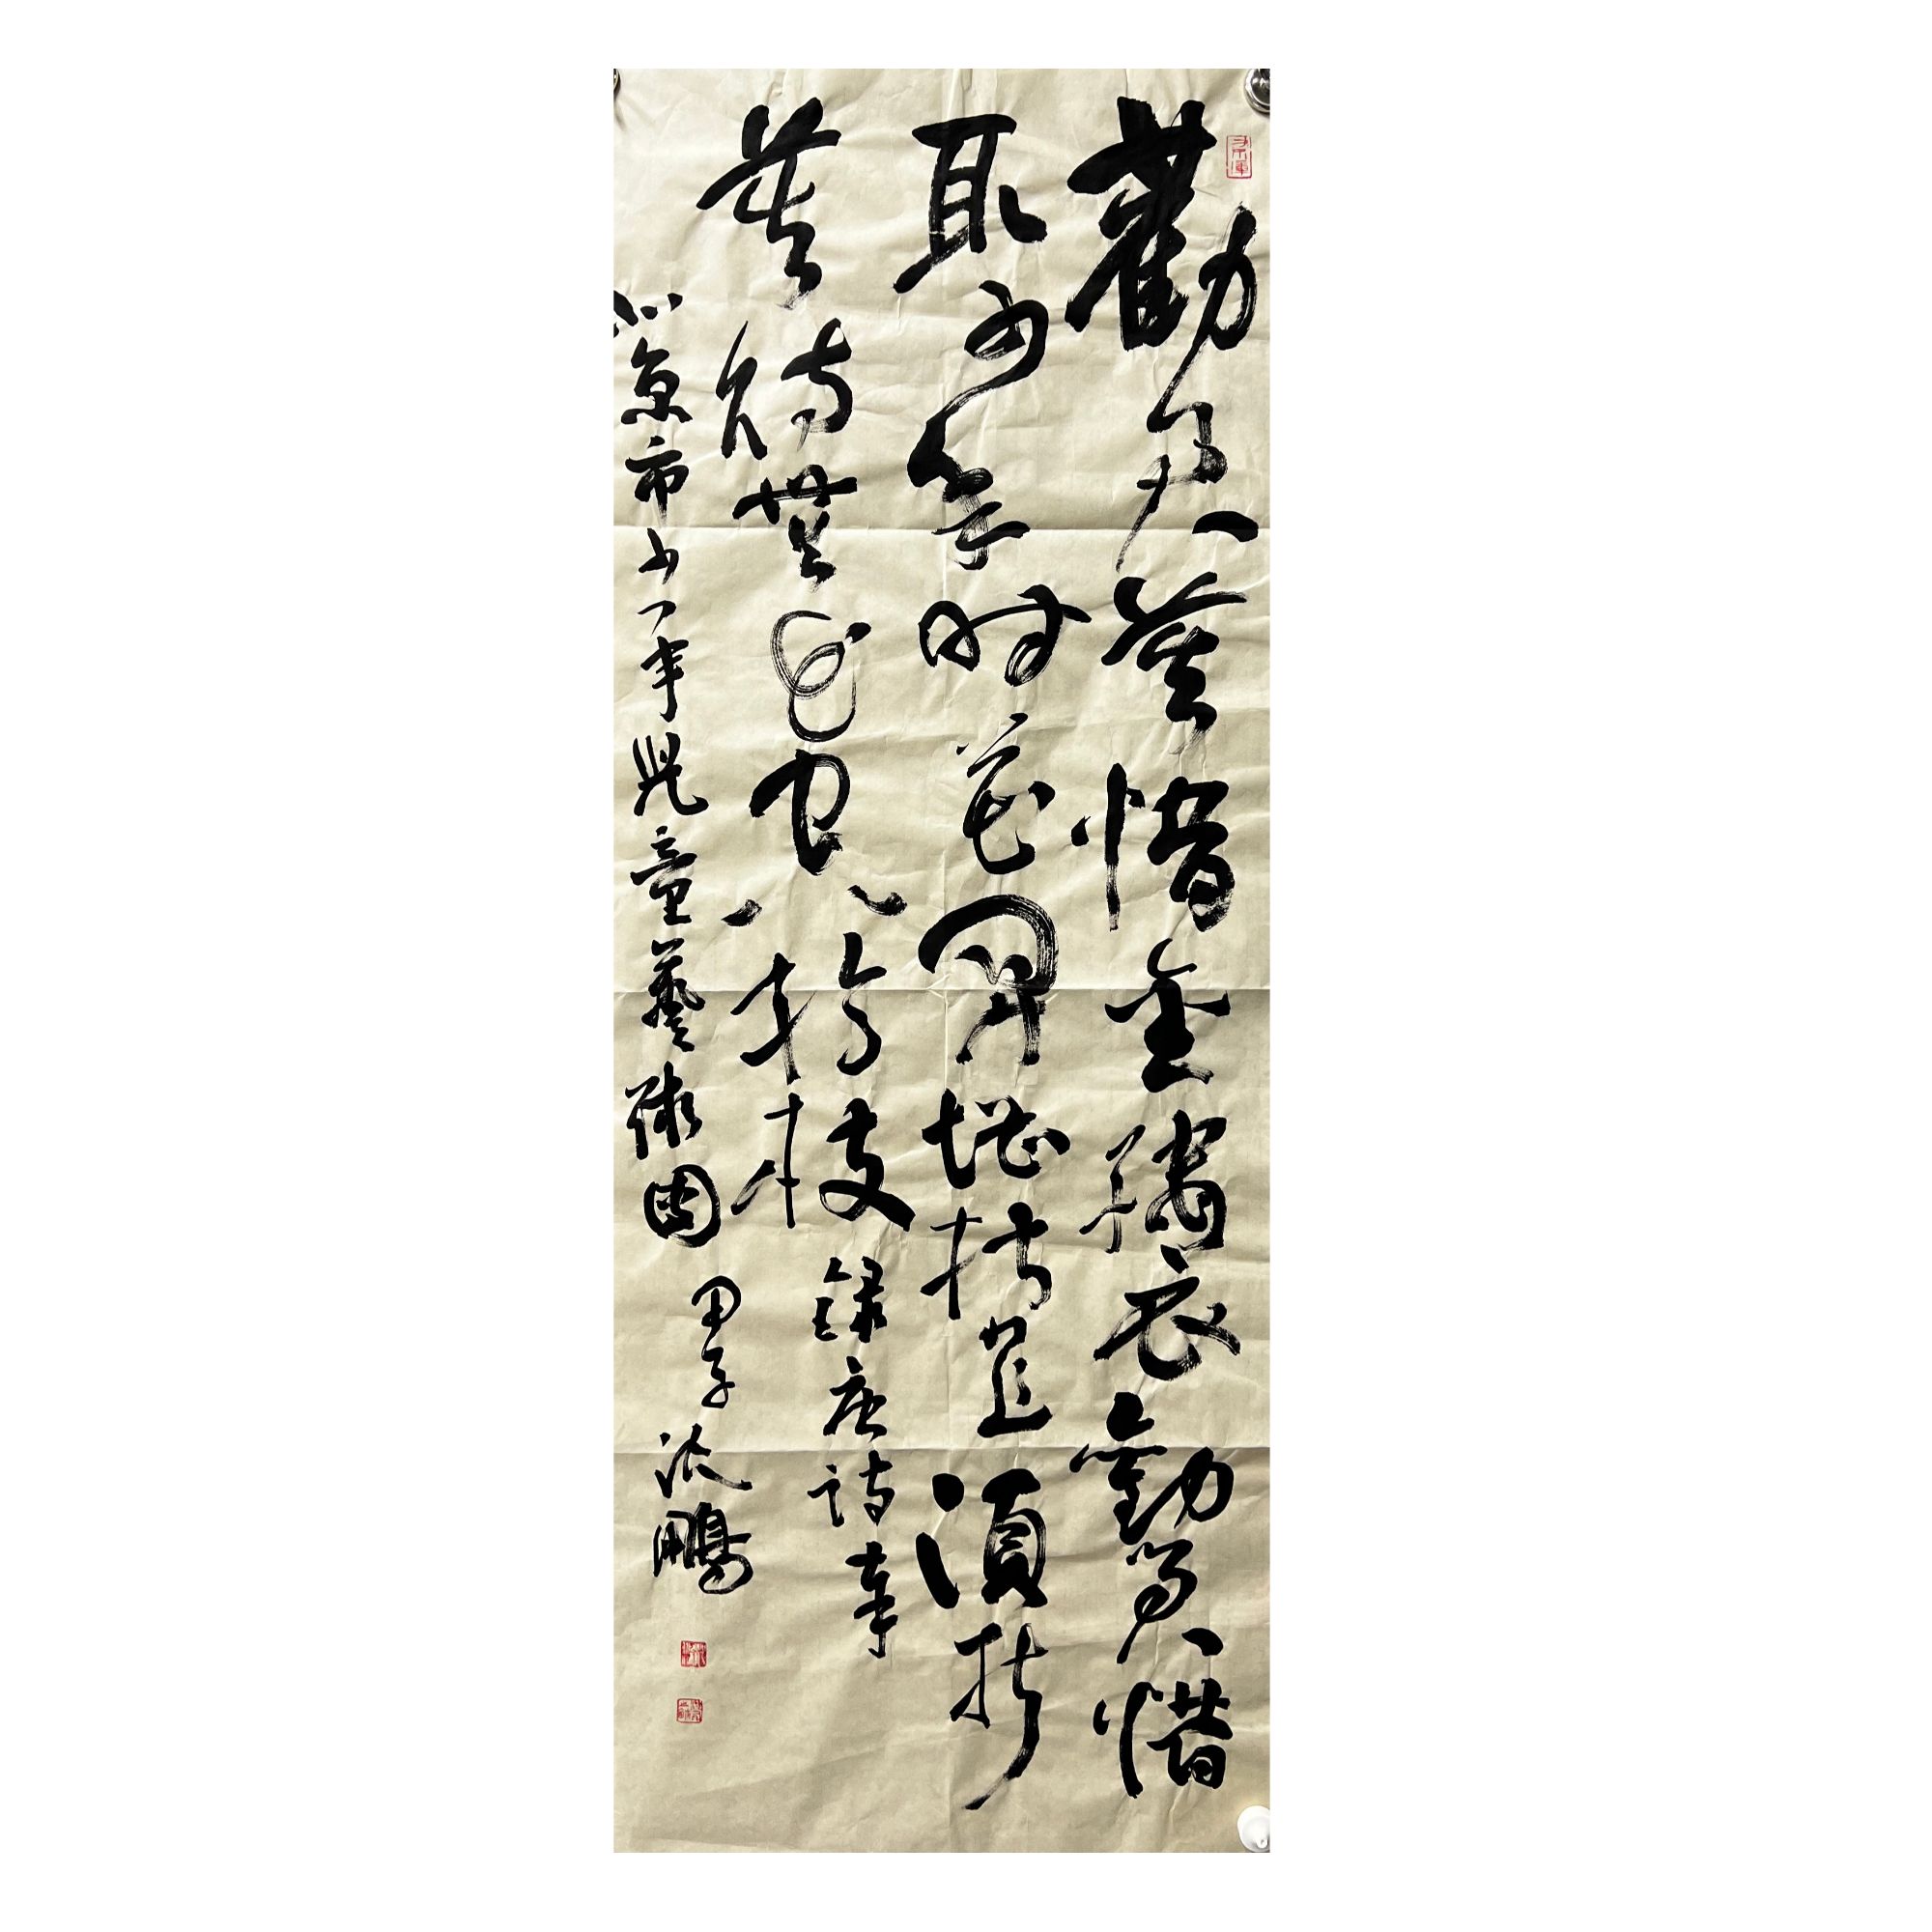 勸君莫惜金縷衣勸君惜
取少年時花開堪折直須折
莫待無花空折枝 錄唐詩奉
北京市少年兒童藝術團 甲子 沈鵬